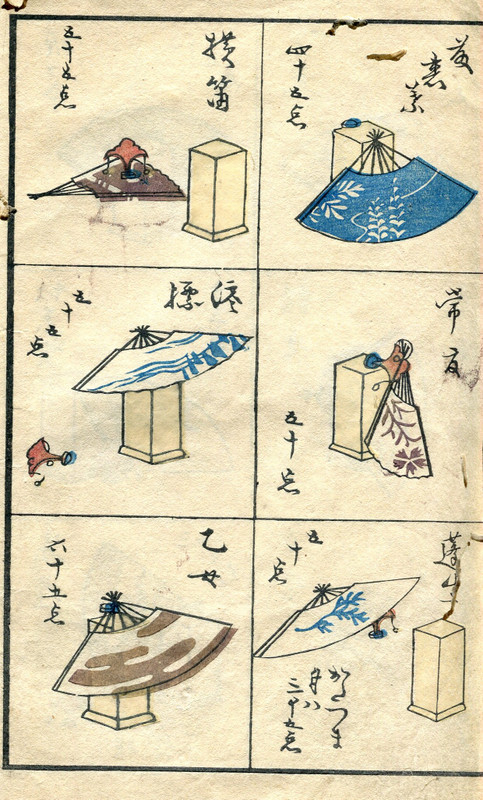 藤裏葉
四十五点
常夏
五十点
蓬生
五十点
三十五点
横笛
五十五点
澪標
五十五点
乙女
六十五点